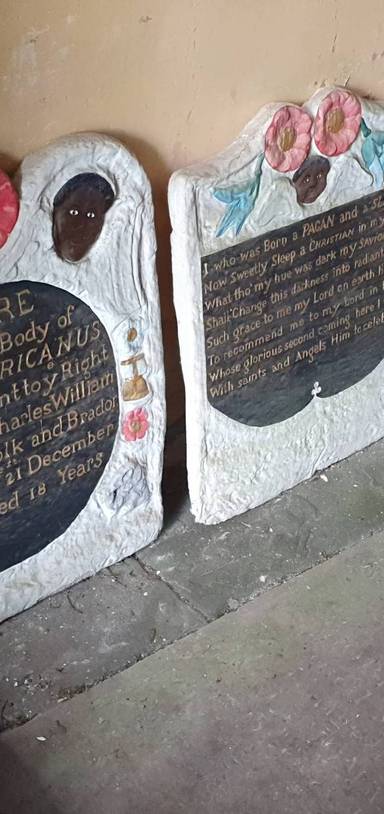 RE
Body of
RICANUS
nt to yᵉ Right
harles William
olk and Bradon
21 December
ed 18 Years
I who was Born a PAGAN and a SL
Now Sweetly Sleep a CHRISTIAN in my
What tho' my hue was dark my SAVIO
Shall Change this darkness into radiant
Such grace to me my Lord on earth
To recommend me to my Lord in
Whose glorious second coming here I
With saints and Angels Him to cele